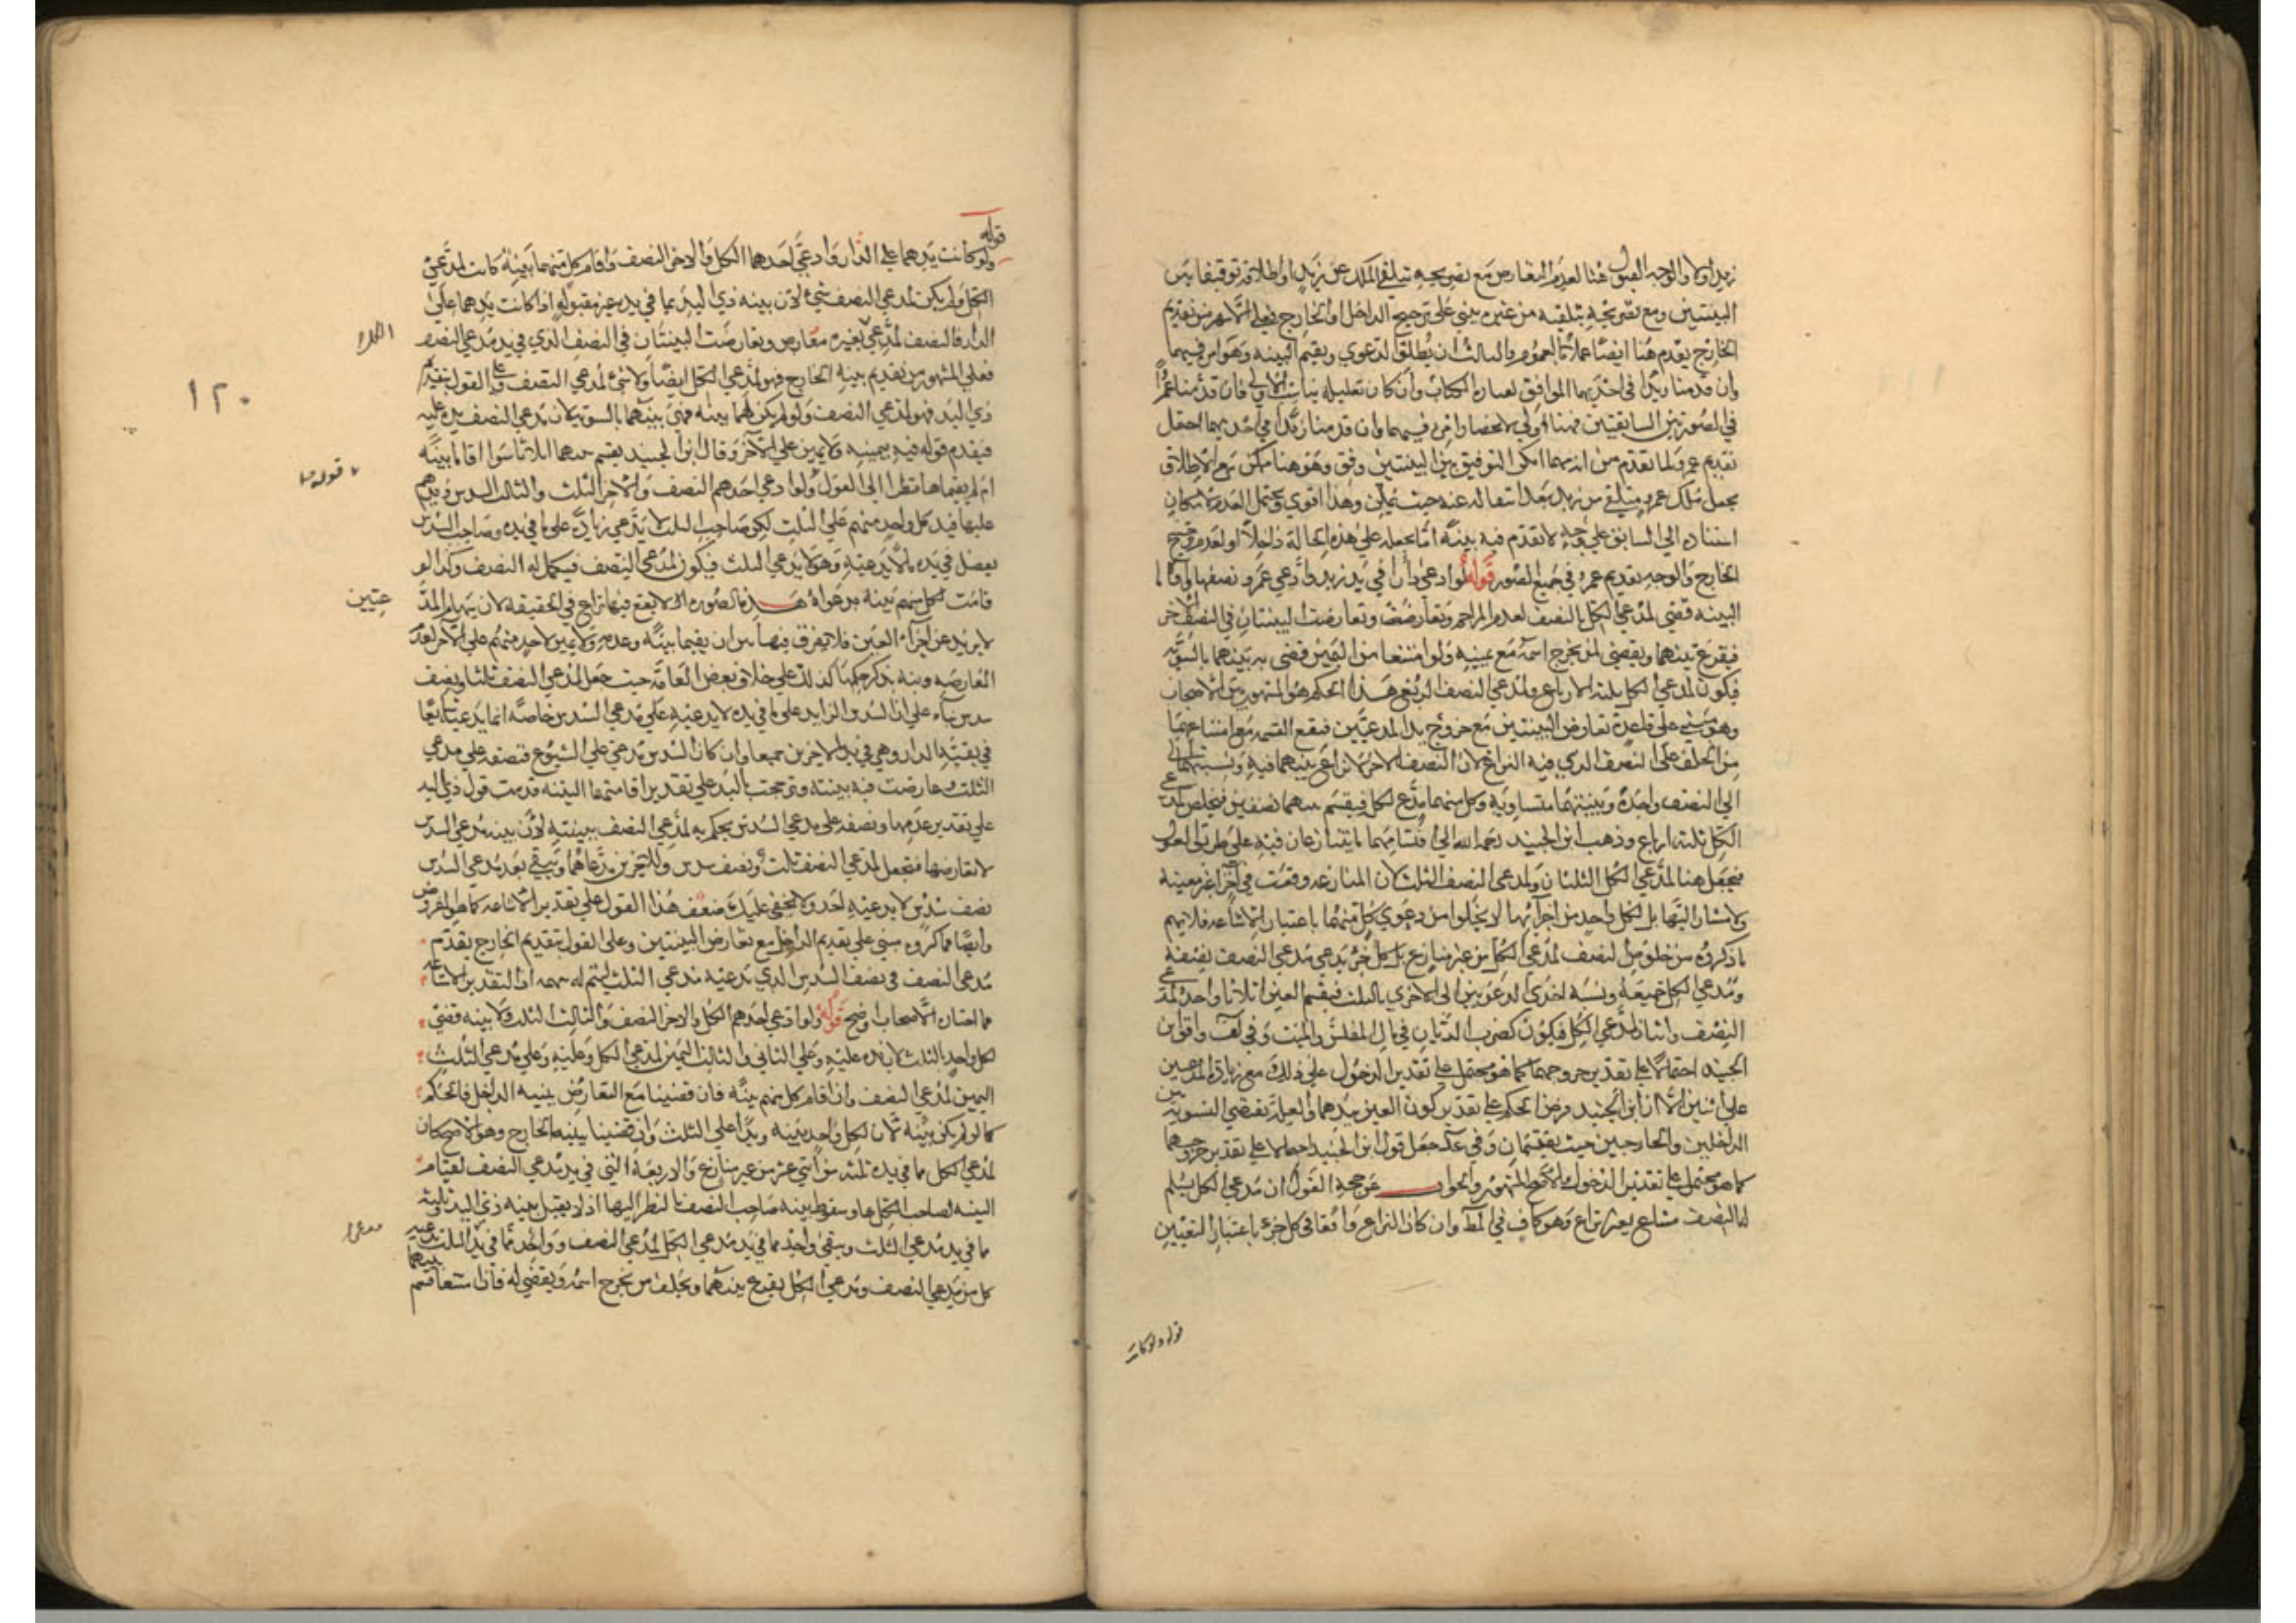 زيد اولا والوجه القبول هنا لعدم التعارض مع تصريحه بتلقي الملك عن زيد او اطلاقه توفيقا بين
البينتين ومع تصريحه بتلقيه من غيره يبني على ترجيح الداخل او الخارج فعلى الاشهر من تقديم
الخارج يقدم هنا ايضا عملا بالعموم والثالث ان يطلقا الدعوى ويقيم البينة وهو اس فيهما
وان قدمنا زيدا في احديهما الموافق لعبارة الكتاب وان كان تعليله يناسب الاولى فان قدمنا عمرا
في الصورتين السابقتين فهنا اولى لانحصار فيهما وان قدمنا زيدا في احديهما احتمل
تقديم عمرو لما تقدم من انه مهما امكن التوفيق بين البينتين وفق وهو هنا ممكن مع الاطلاق
بجعل ملك عمرو متلقى من زيد بعد انتقاله عنه حيث يمكن وهذا اقوى ويحتمل العدم لامكان
استناده الى السابق على وجه لا تقدم فيه بينة اما بجعله على هذه الحالة داخلا او لعدم ترجيح
الخارج والوجه تقديم عمرو في جميع الصور قوله لو ادعى دارا في يد زيد وادعى عمرو نصفها واقاما
البينة قضي لمدعي الكل بالنصف لعدم المزاحم وتعارضت البينتان في النصف الاخر
فيقرع بينهما ويقضى لمن يخرج اسمه مع يمينه ولو امتنعا من اليمين قضي به بينهما بالسوية
فيكون لمدعي الكل ثلثة الارباع ولمدعي النصف الربع هذا الحكم هو المشهور بين الاصحاب
وهو مبني على قاعدة تعارض البينتين مع خروج يد المدعيين فيقع القسمة مع امتناعهما
من الحلف على النصف الذي فيه النزاع لان النصف الاخر لا نزاع بينهما فيه ونسبتهما
الى النصف واحدة وبينتهما متساوية وكل منهما مدع لكله فيقسم بينهما نصفين فيخلص لمدعي
الكل ثلثة ارباع وذهب ابن الجنيد رحمه الله الى اقتسامهما ما يتنازعان فيه على طريق العول
فيجعل هنا لمدعي الكل الثلثان ولمدعي النصف الثلث لان المنازعة وقعت في اجزاء غير معينة
ولا مشار اليها بل كل واحد من اجزائها لا يخلو من دعوى كل منهما باعتبار الاشاعة فلا يتم
ما ذكروه من خلوص النصف لمدعي الكل من غير منازع بل كل جزء يدعي مدعي النصف نصفه
ومدعي الكل جميعه ونسبة احدى الدعويين الى الاخرى بالثلث فيقسم العين اثلاثا واحد لمدعي
النصف واثنان لمدعي الكل فيكون كضرب الديان في مال المفلس والميت وفي لف وافق ابن
الجنيد احتمالا على تقدير خروجهما كما هو محتمل على تقدير الدخول على ذلك مع زيادة المدعيين
على اثنين الا ان ابن الجنيد فرض الحكم على تقدير كون العين بيدهما والعلة تقتضي التسوية بين
الداخلين والخارجين حيث يقتسمان وفي عد جعل قول ابن الجنيد احتمالا على تقدير خروجهما
كما هو محتمل على تقدير الدخول والاصح المشهور والجواب عن حجة القول ان مدعي الكل يسلم
له النصف مشاع بغير نزاع وهو كاف في المط وان كان النزاع واقعا في كل جزء باعتبار التعيين
قوله ولو كانت
قوله
ولو كانت يدهما على الدار وادعى احدهما الكل والاخر النصف واقام كل منهما بينة كانت لمدعي
الكل ولم يكن لمدعي النصف شيء لان بينة ذي اليد بما في يده غير مقبولة اذا كانت يدهما على
الدار فالنصف لمدعي بغير معارض وتعارضت البينتان في النصف الذي في يد مدعي النصف
الكل
فعلى المشهور من تقديم بينة الخارج فهو لمدعي الكل ايضا ولا شيء لمدعي النصف وعلى القول بتقديم
١٢٠
ذي اليد فهو لمدعي النصف ولو لم يكن لهما بينة فهي بينهما بالسوية لان مدعي النصف يده عليه
فيقدم قوله فيه بيمينه ولا يمين على الاخر وقال ابن الجنيد يقسم بينهما اثلاثا سواء اقاما بينة
ام لم يقيماها نظرا الى العول قوله ولو ادعى احدهم النصف والاخر الثلث والثالث السدس ويدهم
عليها فيد كل واحد منهم على الثلث لكن صاحب الثلث لا يدعي زيادة على ما في يده وصاحب السدس
يفضل في يده ما لا يدعيه وهو لا يدعي الثلث فيكون لمدعي النصف فيكمل له النصف وكذا لو
قامت لكل منهم بينة بدعواه هذه الصورة لا يقع فيها نزاع في الحقيقة لان سهام المد
عيين
لا يزيد عن اجزاء العين فلا يفرق فيها بين ان يقيما بينة وعدمه ولا يمين لاحد منهم على الاخر لعدم
المعارضة ونبه بذكر حكمها كذلك على خلاف بعض العامة حيث جعل لمدعي النصف ثلثا ونصف
سدس بناء على ان السدس الزايد على ما في يده لا يدعيه على مدعي السدس خاصة انما يدعيه شايعا
في بقية الدار وهي في يد الاخرين جميعا وان كان السدس مدعى على الشيوع فنصفه على مدعي
الثلث وعارضت فيه بينته وترجحت باليد على تقدير اقامتها البينة قدمت قول ذي اليد
على تقدير عدمها ونصفه على مدعي السدس يحكم به لمدعي النصف ببينته لان بينة مدعي السدس
لا تعارضها فيجعل لمدعي النصف ثلث ونصف سدس وللاخرين مدعاهما ويبقى بعد مدعي السدس
نصف سدس لا يدعيه احد ولا يخفى عليك ضعف هذا القول على تقدير الاشاعة كما هو المفروض
وايضا فما ذكروه مبني على تقديم الداخل مع تعارض البينتين وعلى القول بتقديم الخارج يقدم
مدعي النصف في نصف السدس الذي يدعيه مدعي الثلث ليتم له اذ التقدير الاشاعة
فما اختاره الاصحاب اوضح قوله ولو ادعى احدهم الكل والاخر النصف والثالث الثلث ولا بينة قضي
لكل واحد الثلث لان يده عليه وعلى الثاني والثالث اليمين لمدعي الكل وعليه وعلى مدعي الثلث
اليمين لمدعي النصف وان اقام كل منهم بينة فان قضينا مع التعارض ببينة الداخل فالحكم
كما لو لم يكن بينة لان لكل واحد بينة ويدا على الثلث وان قضينا ببينة الخارج وهو الاصح كان
لمدعي الكل مما في يده ثلثة من اثني عشر من غير منازع والاربعة التي في يد مدعي النصف لقيام
البينة لصاحب الكل بها وسقوط بينة صاحب النصف بالنظر اليها اذ لا يقبل بينة ذي اليد وثلثة
مما في يد مدعي الثلث ويبقى واحد مما في يد مدعي الكل لمدعي النصف وواحد مما في يد الثلث يدعيه
كل من مدعي النصف ومدعي الكل يقرع بينهما ويحلف من يخرج اسمه ويقضى له فان امتنعا قسم
بينهما